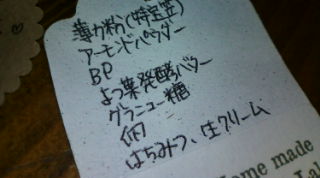 薄力粉(特宝笠)
アーモンドパウダー
BP
よつ葉発酵バター
グラニュー糖
卵
はちみつ、生クリーム
ome made